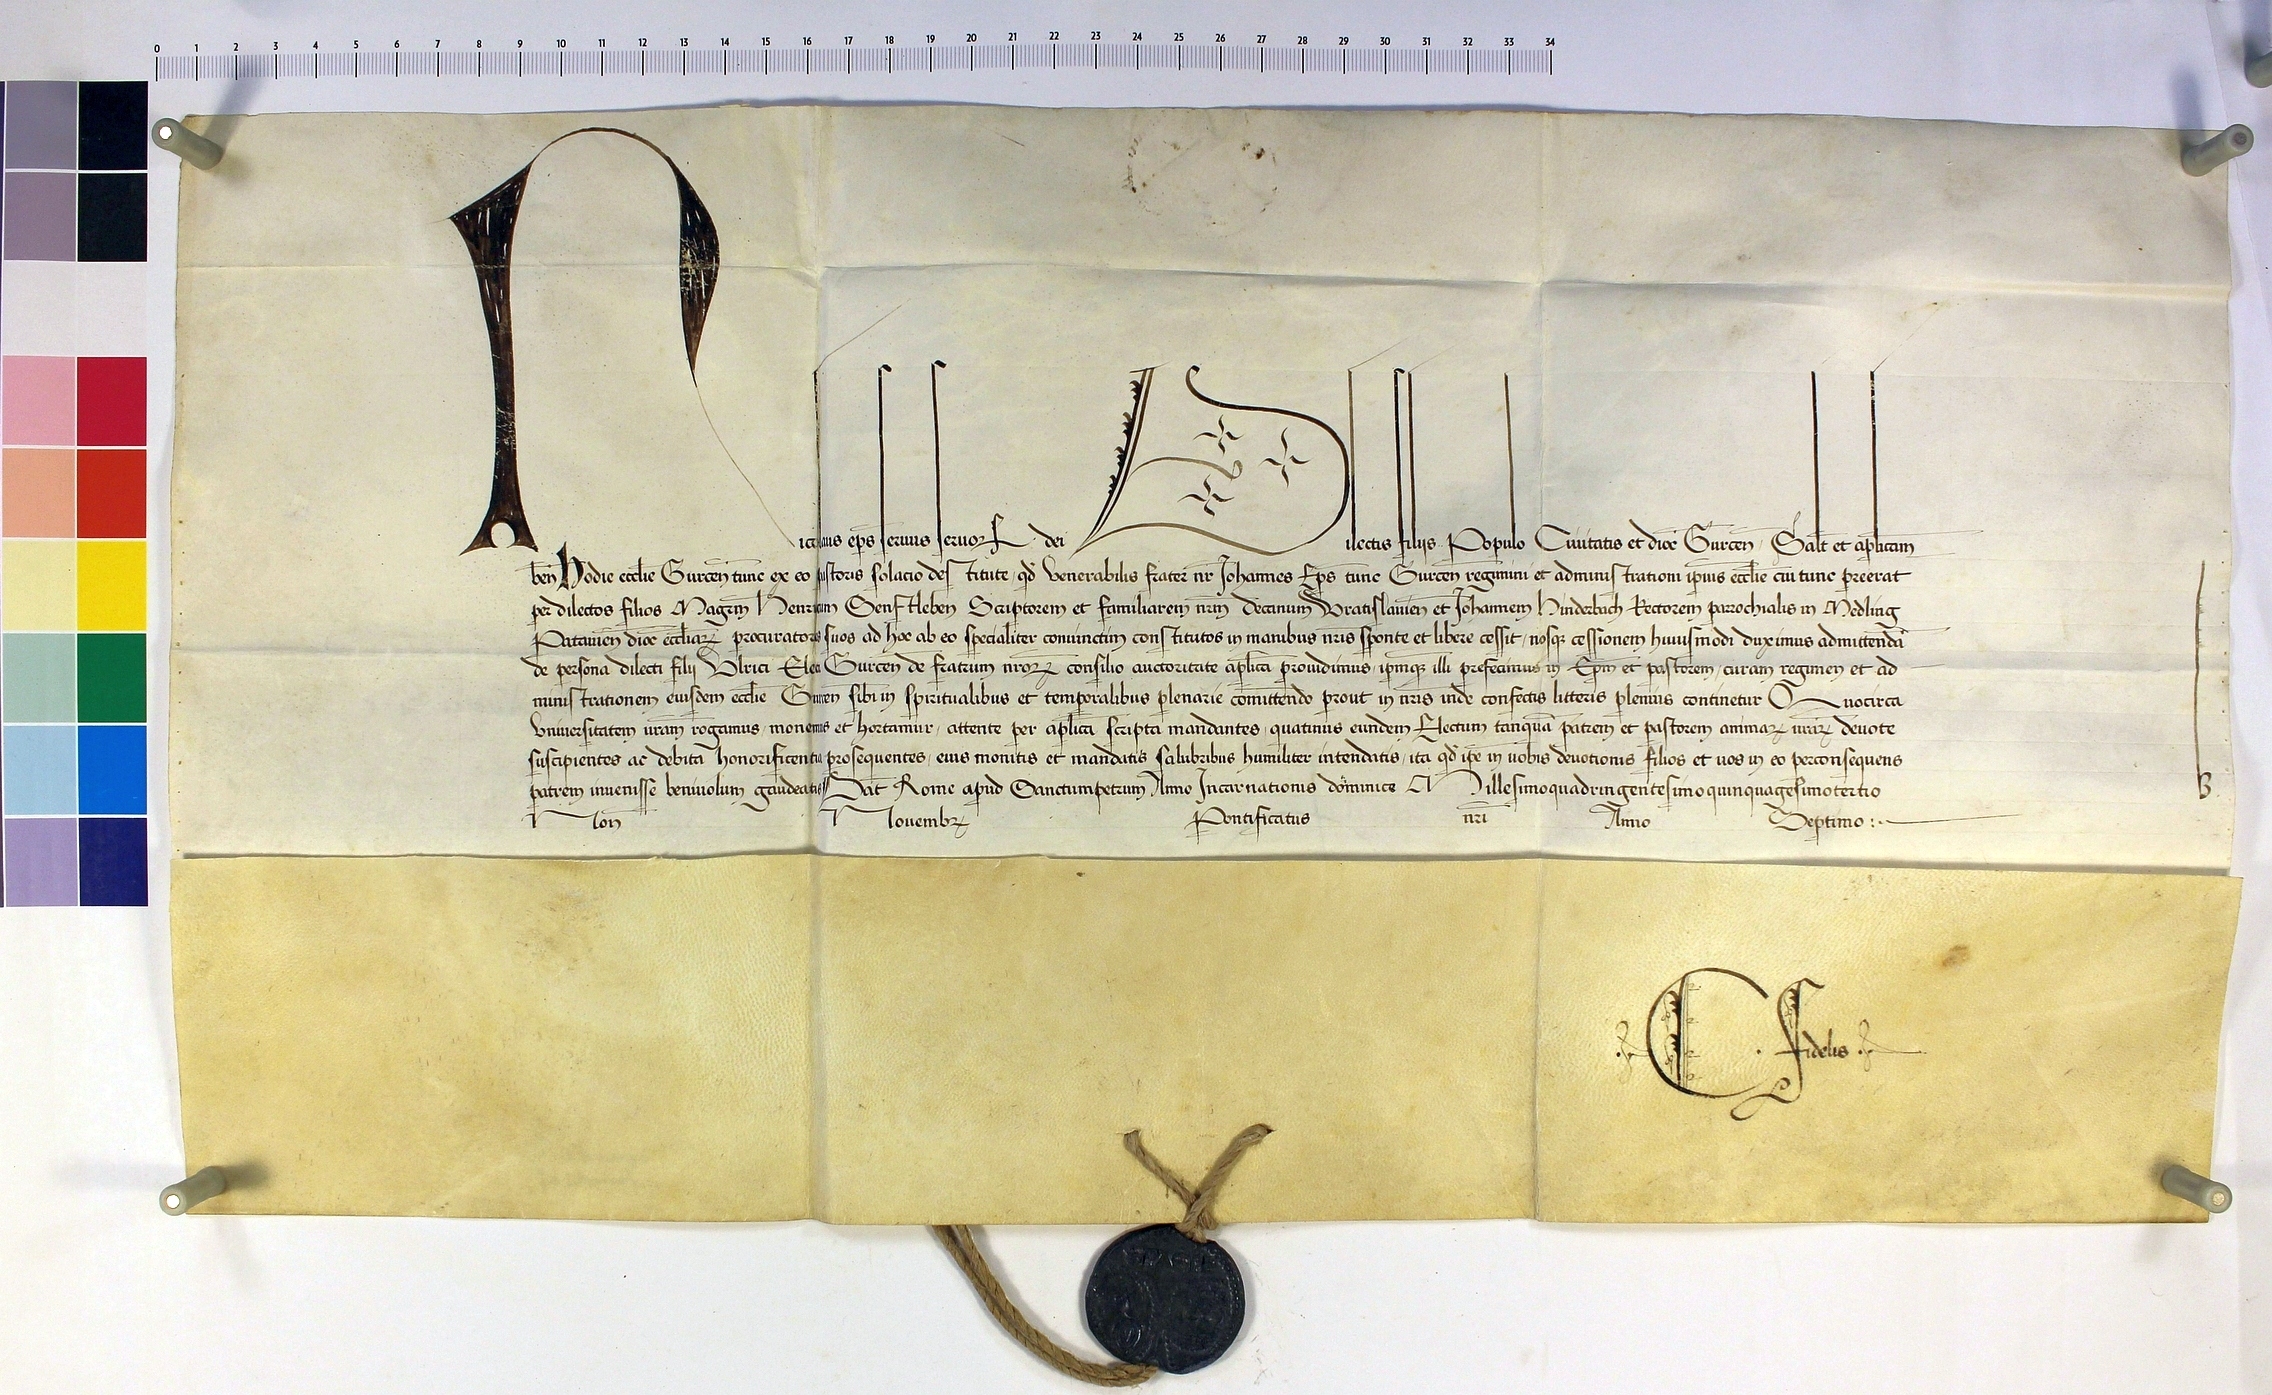 0 1 2 3 4 5 6 7 8 9 10 11 12 13 14 15 16 17 18 19 20 21 22 23 24 25 26 27 28 29 30 31 32 33 34
Nicolaus eps seruus seruor dei Dilectis filijs Populo Ciuitatis et dioc Gurcen Salt et aplicam
ben Hodie ecclie Gurcen tunc ex eo pastoris solacio destitute qd venerabilis frater nr Johannes Eps tunc Gurcen regimini et administrationi ipius ecclie cui tunc preerat
per dilectos filios Magrm Henricum Senftleben Scriptorem et familiarem nrm decanum Wratislauien et Johannem Hinderbach Rectorem parrochialis in Medling
Patauien dioc eccliarꝝ procuratores suos ad hoc ab eo specialiter coniunctim constitutos in manibus nris sponte et libere cessit nosqꝫ cessionem huiusmodi duximus admittendā
de persona dilecti filij Vlrici Elec Gurcen de fratrum nrorꝝ consilio auctoritate aplica prouidimus ipmqꝫ illi prefecimus in Epm et pastorem curam regimen et ad
ministrationem eiusdem ecclie Gurcen sibi in spiritualibus et temporalibus plenarie comittendo prout in nris inde confectis litteris plenius continetur Quocirca
Vniuersitatem vram rogamus monemus et hortamur attente per aplica scripta mandantes quatinus eundem Electum tanquā patrem et pastorem animarꝝ vrarꝝ deuote
suscipientes ac debita honorificentia prosequentes eius monitis et mandatis salubribus humiliter intendatis ita qd ipe in uobis deuotionis filios et uos in eo perconsequens
patrem inuenisse beniuolum gaudeatis Dat Rome apud Sanctumpetrum Anno Incarnationis dominice Millesimoquadringentesimoquinquagesimotertio
Non Nouembrꝝ Pontificatus nri Anno Septimo :·
B
C . fidelis